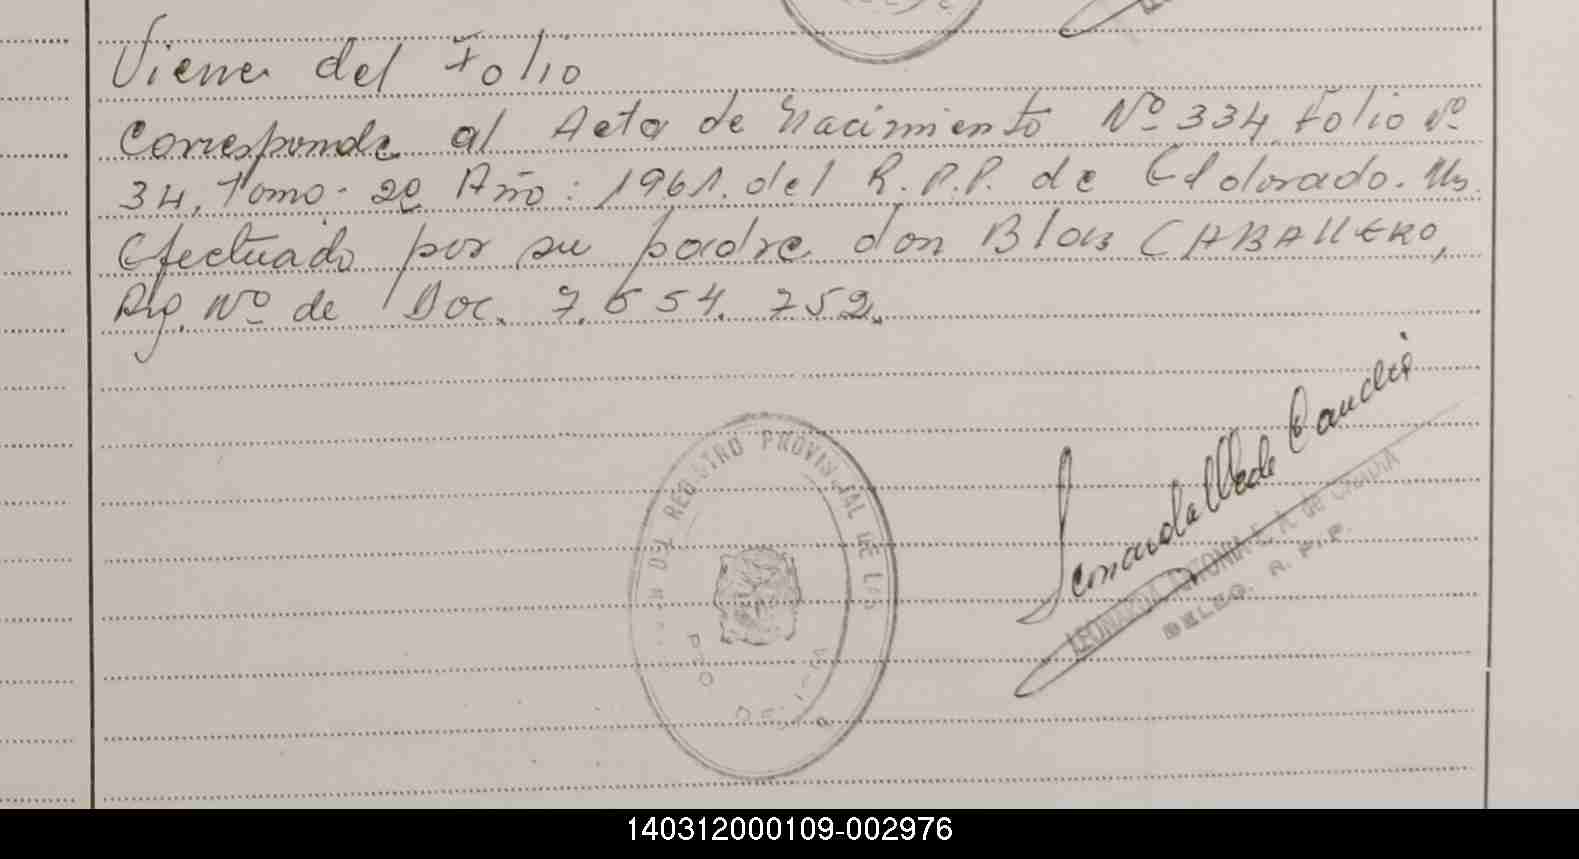 Viene del Folio
Corresponde al Acta de Nacimiento Nº 334, Folio Nº
34, Tomo. 2º Año: 1961. del R.P.P. de Eldorado. Ms.
Efectuado por su padre don Blas CABALLERO,
Arg. Nº de Doc. 7.654.752.
REGISTRO PROVINCIAL DE LAS
LEONARDA ANTONIA
DELEG. R. P. P.
140312000109-002976